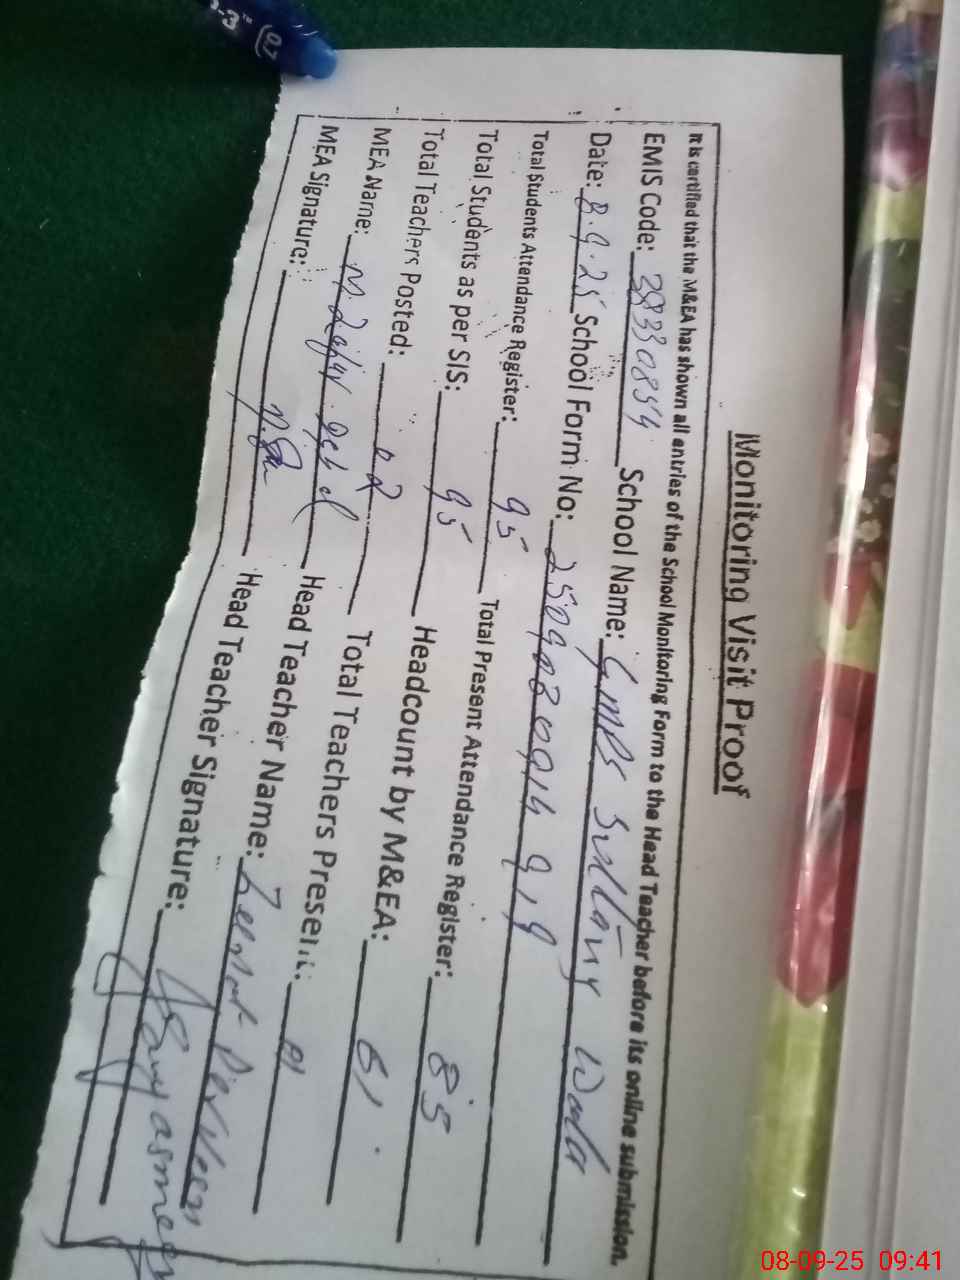 -3™ 0.7
Monitoring Visit Proof
It is certified that the M&EA has shown all entries of the School Monitoring Form to the Head Teacher before its online submission.
EMIS Code: 38330854 School Name: GMPS Sultany Wala
Date: 8.9.25 School Form No:
Total Students Attendance Register: 95 Total Present Attendance Register: 85
Total Students as per SIS: 95 Headcount by M&EA: 61
Total Teachers Posted: 02 Total Teachers Present: 01
MEA Name: Head Teacher Name: Zeenat Perveen
MEA Signature: Head Teacher Signature:
08-09-25 09:41